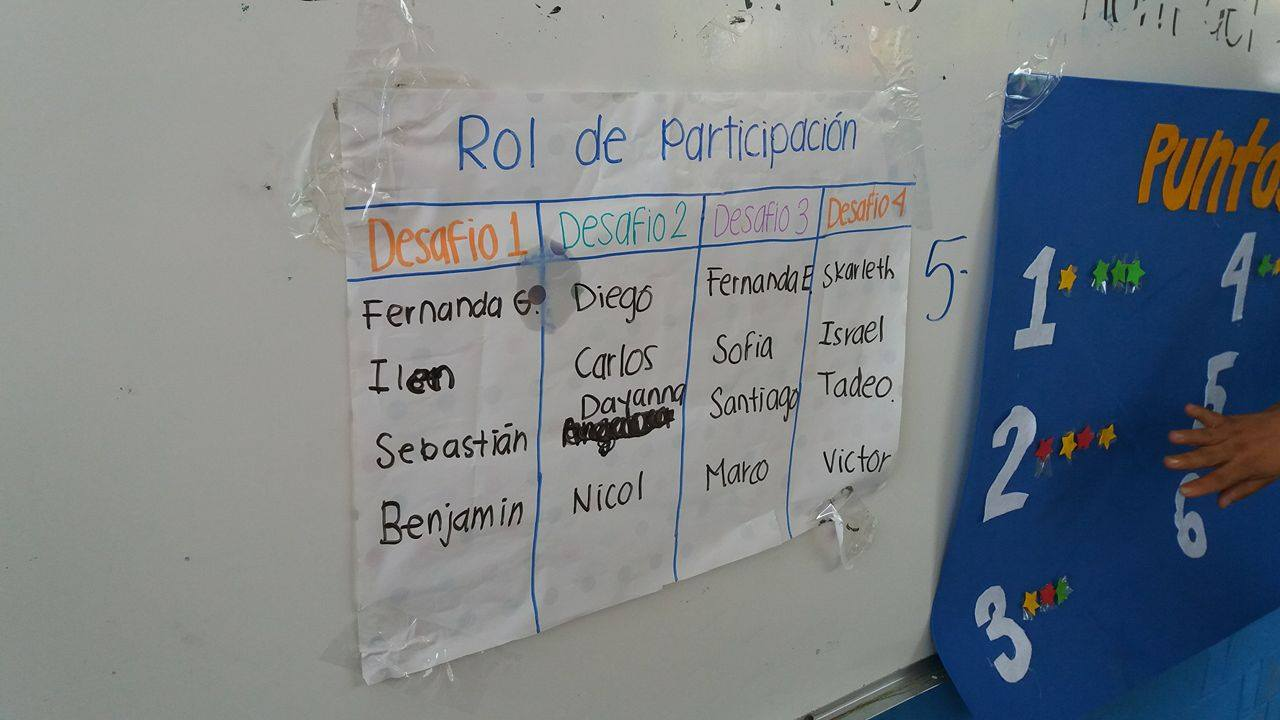 Rol de Participación
Desafio 1 Desafio 2 Desafio 3 Desafio 4
Fernanda G. Diego Fernanda E Skarleth
Ilen Carlos Sofia Israel
Dayanna Santiago Tadeo.
Sebastián
Benjamin Nicol Marco Victor
5-
Punto
1 4
2 5
6
3